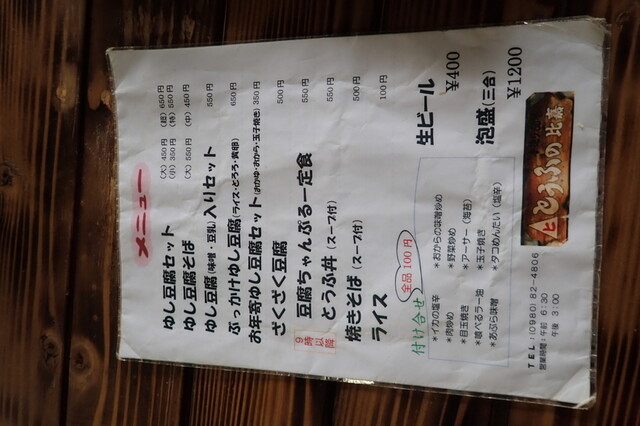 メニュー
ゆし豆腐セット (大) 450円 (超) 650円
(小) 350円 (特) 550円
ゆし豆腐そば (大) 550円 (中) 450円
ゆし豆腐(味噌・豆乳)入りセット 550円
ぶっかけゆし豆腐(ライス・とろろ・黄卵) 650円
お年寄ゆし豆腐セット(おかゆ・おから・玉子焼き) 350円
ざくざく豆腐 500円
9時以降
豆腐ちゃんぷるー定食 550円
とうふ丼(スープ付) 550円
焼きそば(スープ付) 500円
ライス 100円
付け合せ 全品100円
*イカの塩辛 *おからの味噌炒め
*肉炒め *野菜炒め
*目玉焼き *アーサー(海苔)
*喰べるラー油 *玉子焼き
*あぶら味噌 *タコめんたい(塩辛)
生ビール ¥400
泡盛(三合) ¥1200
とうふの比嘉
TEL:(0980) 82-4806
営業時間:午前 6:30
午後 3:00